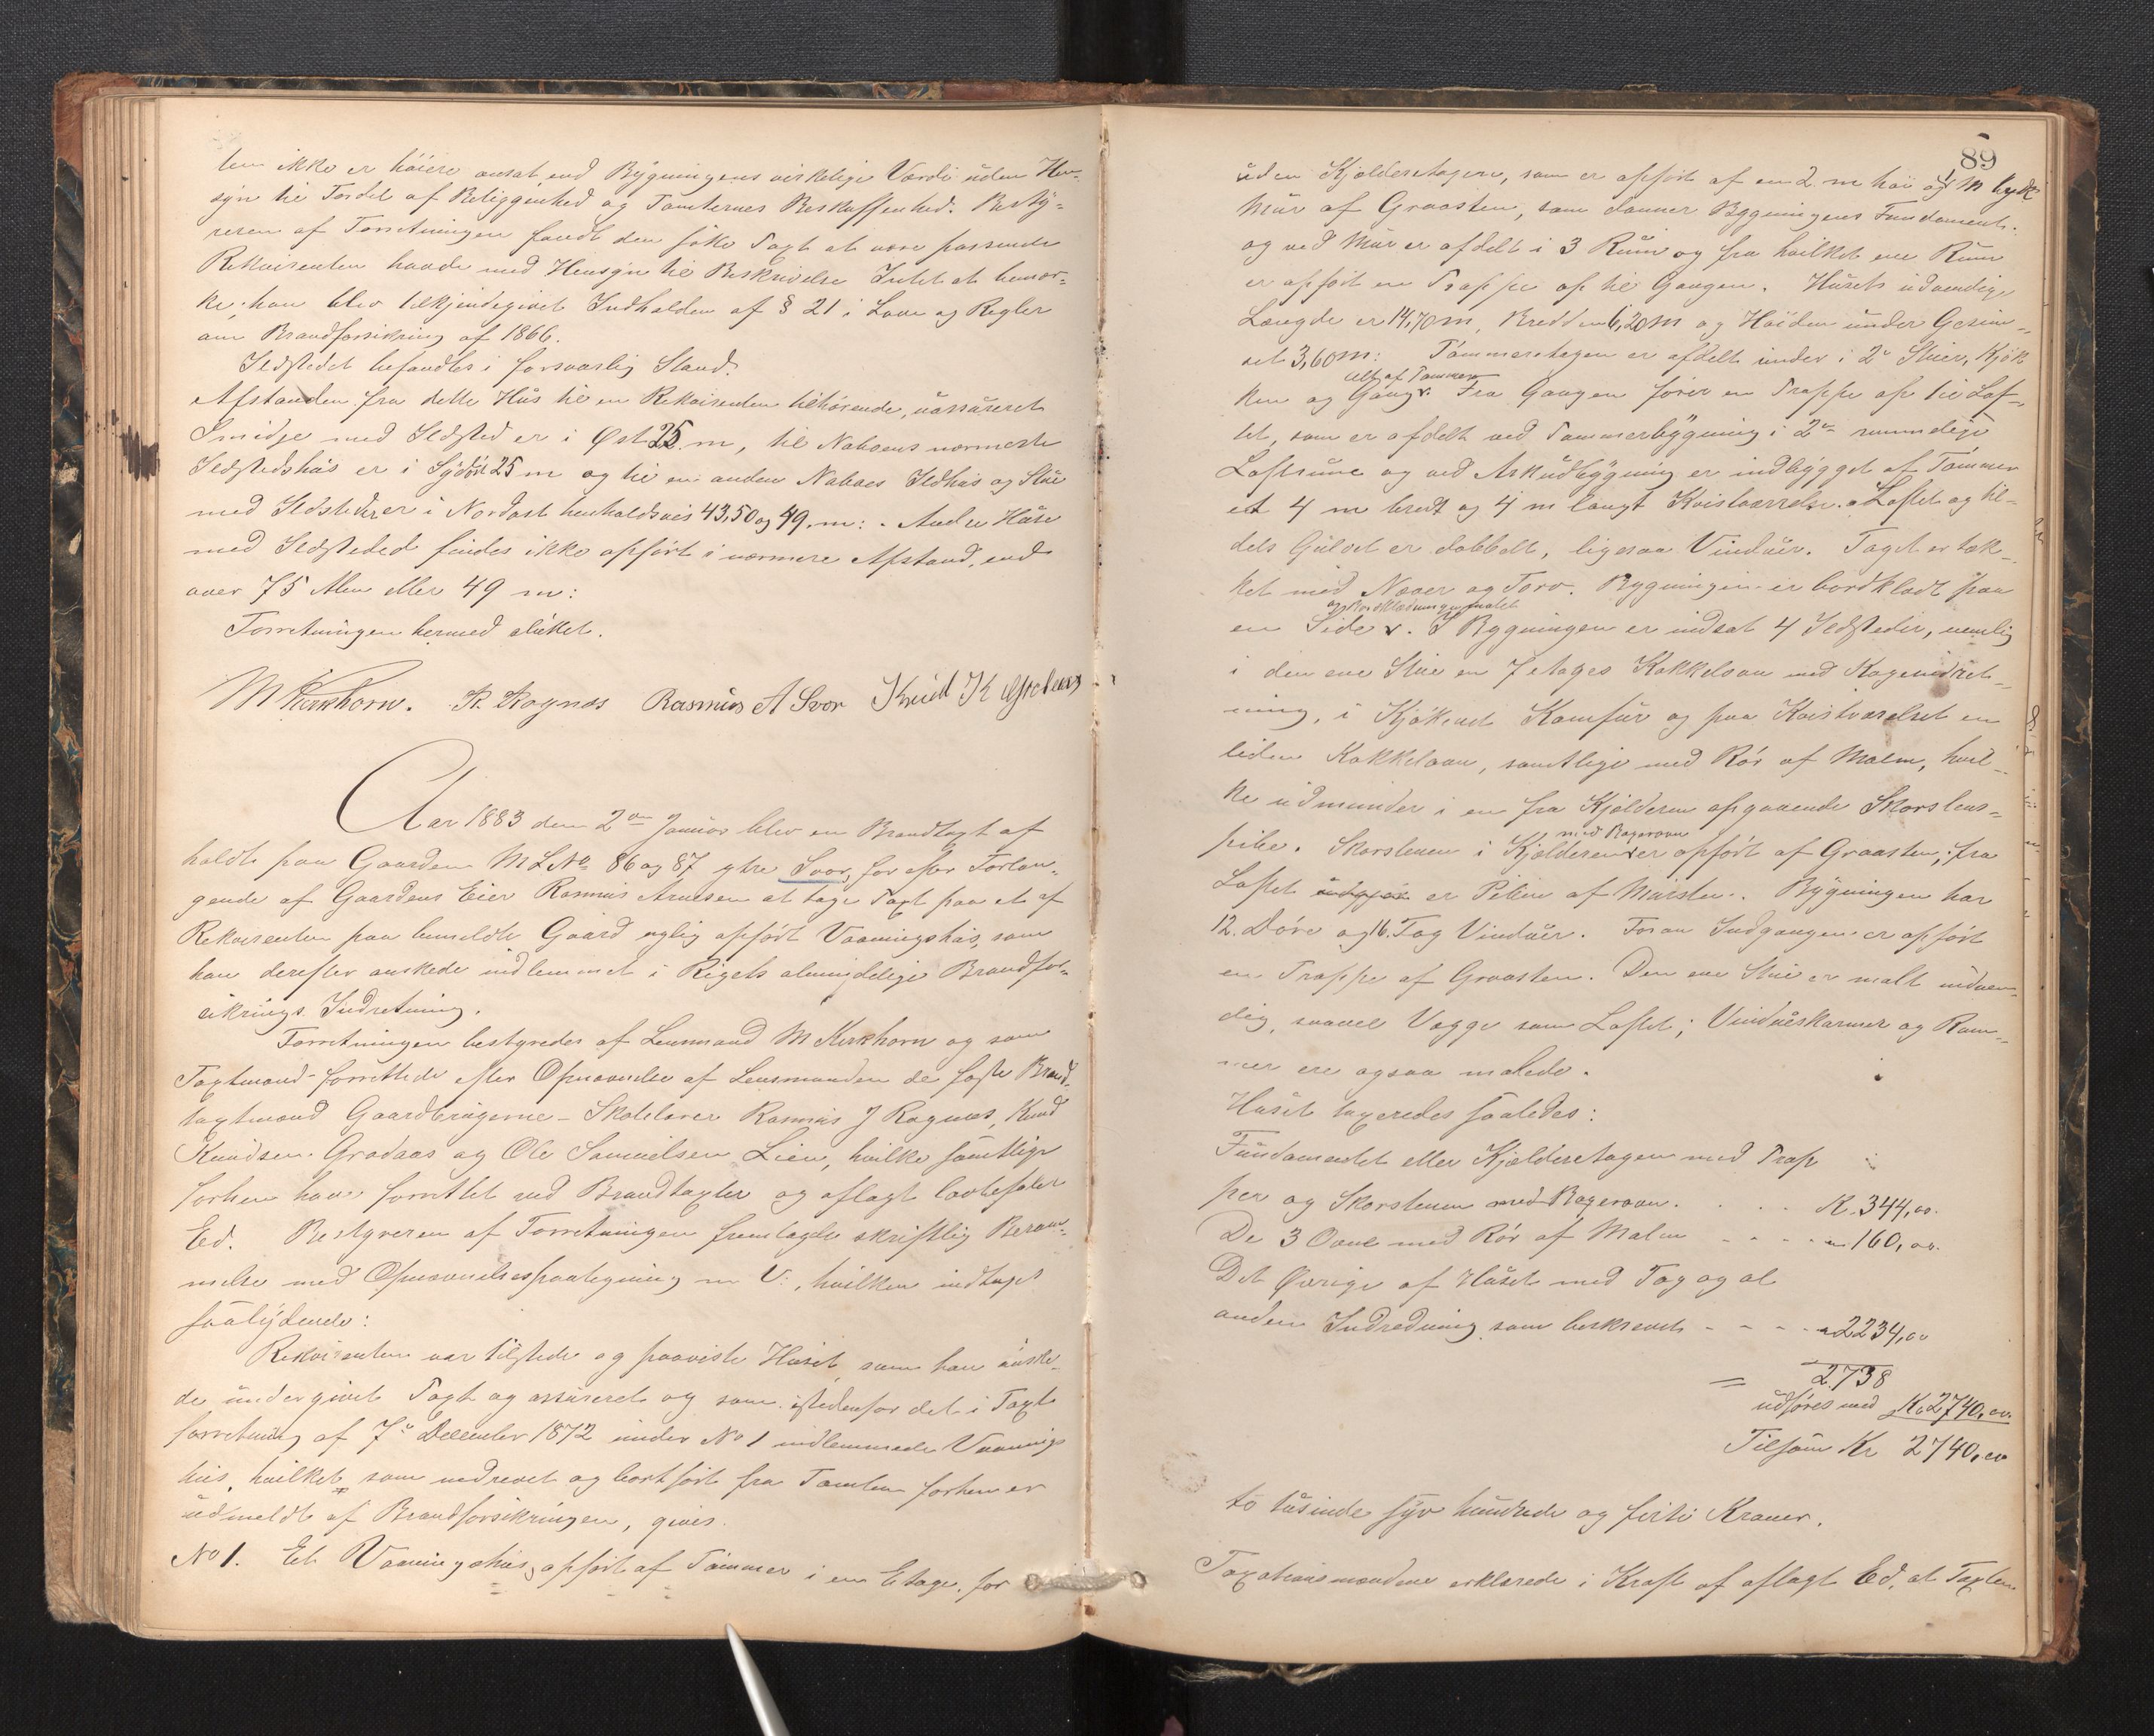 ten ikke er høiere ansat end Bygningens virkelige Værdi uden Hen-
syn til Fordel af Beliggenhed og Tomternes Beskaffenhed. Besty-
reren af Forretningen fandt den satte Taxt at være passende
Rekvirenten havde med Hensyn til Beskrivelse Intet at bemær-
ke; han blev tilkjendegivet Indholdet af § 21 i Love og Regler
om Brandforsikring af 1866.
Ildstedet befandtes i forsvarlig Stand.
Afstanden fra dette Hus til en Rekvirenten tilhørende, uassureret
Smidje med Ildsted er i Øst 25 m, til Naboens nærmeste
Ildstedshus er i Sydøst 25 m og til en anden Naboes Ildhus og Stue
med Ildsteder er i Nordost henholdsvis 43,50 og 49. m: . Andre Huse
med Ildsteded findes ikke opført i nærmere Afstand, end
over 75 Alen eller 49 m:
Forretningen hermed sluttet.
M Kirkhorn. R. Ragnæs Rasmus A Svor Knud K
Aar 1883 den 2den Januar blev en Brandtaxt af
holdt paa Gaarden M L No 86 og 87 ytre Svor, for efter Forlan-
gende af Gaardens Eier Rasmus Arnesen at tage Taxt paa et af
Rekvirenten paa bemeldte Gaard nylig opført Vaaningshus, som
han derefter ønskede indlemmet i Rigets almindelige Brandfor-
sikrings Indretning.
Forretningen bestyredes af Lensmand M Kirkhorn og som
Taxtmænd forrettede efter Opnævnelse af Lensmanden de faste Brand-
taxtmænd Gaardbrugerne - Skolelærer Rasmus J Ragnæs, Knud
Knudsen Grodaas og Ole Samuelsen Lien, hvilke samtlige
forhen have forrettet ved Brandtaxter og aflagt lovbefalet
Ed. Bestyreren af Forretningen fremlagde skriftlig Beram-
melse med Opnævnelsespaategning m V:, hvilken indtages
saalydende:
Rekvirenten var tilstede og paaviste Huset, som han ønske-
de undergivet Taxt og assureret og som istedenfor det i Taxt
forretning af 7de December 1872 under No 1 indlemmede Vaanings
hus, hvilket som nedrevet og bortført fra Tomten forhen er
udmeldt af Brandforsikringen, gives.
No 1. Et Vaaningshus, opført af Tømmer i en Etage, for
89
uden Kjælderetagen, som er opført af en 2 m høi og 1 m tyk
Mur af Graasten, som danner Bygningens Fundament.
og ved Mur er afdelt i 3 Rum og fra hvilket ene Rum
er opført en Trappe op til Gangen. Husets udvendige
Længde er 14,70 m, Bredden 6,20 m og Høiden under Gesim-
set 3,60 m: Tømmeretagen er afdelt under i 2de Stuer, Kjøk
alt af Tømmer
ken og Gang v. Fra Gangen fører en Trappe op til Lof-
tet, som er afdelt ved Tømmerbygning i 2de rummelige
Loftsrume og ved Arkudbygning er indbygget af Tømmer
et 4 m bredt og 4 m langt Kvistværrelse. Loftet og til-
dels Gulvet er dobbelt, ligesaa Vinduer. Taget er tæk-
ket med Næver og Torv. Bygningen er bordklædt paa
og Bordklædningen malet
en Side v. I Bygningen er indsat 4 Ildsteder, nemlig
i den ene Stue en 7 etages Kakkelovn med Kogeindret-
ning, i Kjøkenet Komfur og paa Kvistværelset en
liden Kakkelovn, samtlige med Rør af Malm, hvil-
ke udmunder i en fra Kjælderen opgaaende Skorstens-
med Bagerovn
pibe. Skorstenen i Kjælderen v er opført af Graasten; fra
Loftet er Piben af Mursten. Bygningen har
12. Døre og 16. Fag Vinduer. Foran Indgangen er opført
en Trappe af Graasten. Den ene Stue er malt indven-
dig, saavel Vægge som Loftet; Vindueskarmer og Ram-
mer ere ogsaa malede.
Huset taxeredes saaledes:
Fundamentet eller Kjælderetagen med Trap
per og Skorstenen med Bagerovn. . . . K. 344,00.
De 3 Ovne med Rør af Malm - - - - " 160,00.
Det Øvrige af Huset med Tag og al
anden Indredning som beskrevet - - - - " 2234,00
= 2738
udføres med Kr 2740,00.
Tilsam Kr 2740,00
to tusinde syv hundrede og firti Kroner.
Taxationsmændene erklærede i Kraft af aflagt Ed, at Taxten